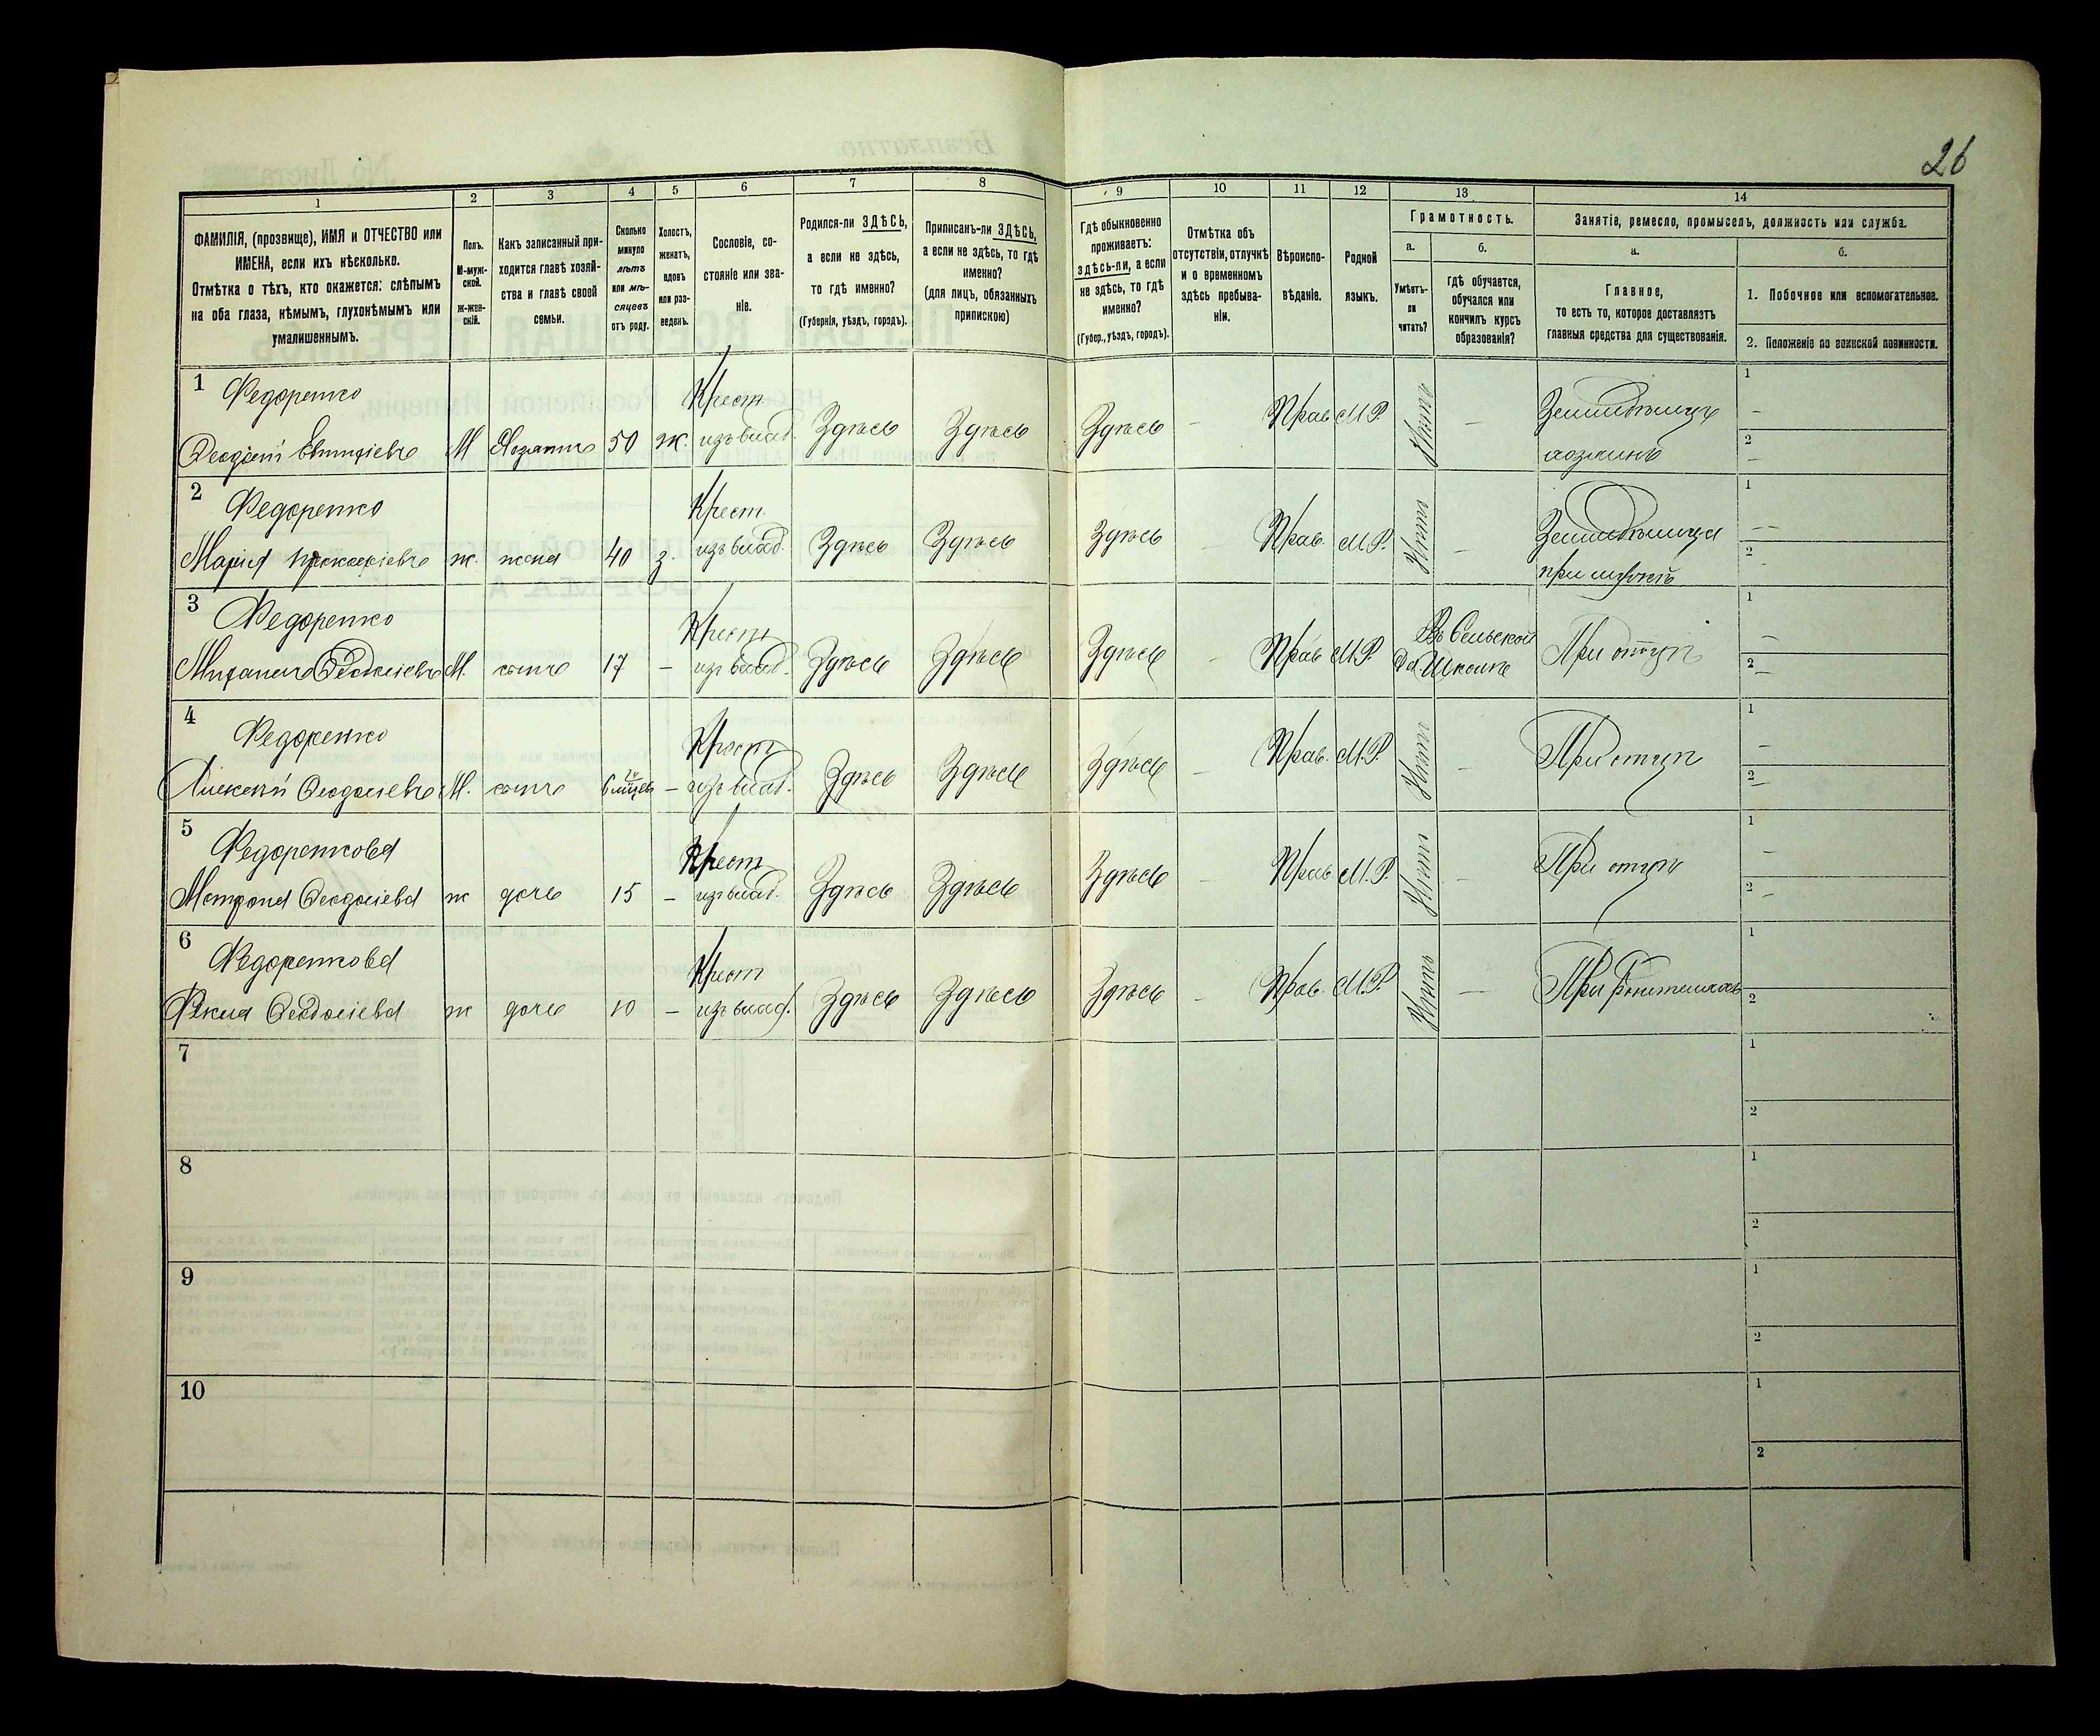 26
1 2 3 4 5 6 7 8 9 10 11 12 13 14
ФАМИЛІЯ, (прозвище), ИМЯ и ОТЧЕСТВО или
ИМЕНА, если ихъ нѣсколько.
Отмѣтка о тѣхъ, кто окажется: слѣпымъ
на оба глаза, нѣмымъ, глухонѣмымъ или
умалишеннымъ.
Полъ.
М-муж-
ской.
Ж-жен-
скій.
Какъ записанный при-
ходится главѣ хозяй-
ства и главѣ своей
семьи.
Сколько
минуло
лѣтъ
или мѣ-
сяцевъ
отъ роду.
Холостъ,
женатъ,
вдовъ
или раз-
веденъ.
Сословіе, со-
стояніе или зва-
ніе.
Родился-ли ЗДѢСЬ,
а если не здѣсь,
то гдѣ именно?
(Губернія, уѣздъ, городъ).
Приписанъ-ли ЗДѢСЬ,
а если не здѣсь, то гдѣ
именно?
(для лицъ, обязанныхъ
припискою)
Гдѣ обыкновенно
проживаетъ:
здѣсь-ли, а если
не здѣсь, то гдѣ
именно?
(Губер., уѣздъ, городъ).
Отмѣтка объ
отсутствіи, отлучкѣ
и о временномъ
здѣсь пребыва-
ніи.
Вѣроиспо-
вѣданіе.
Родной
языкъ.
Грамотность.
а.
Умѣетъ-
ли
читать?
б.
гдѣ обучается,
обучался или
кончилъ курсъ
образованія?
Занятіе, ремесло, промыселъ, должность или служба.
а.
Главное,
то есть то, которое доставляетъ
главныя средства для существованія.
б.
1. Побочное или вспомогательное.
2. Положеніе по воинской повинности.
1 Федоренко Крест.
М Хозяинъ 50 ж. изъ влад. Здѣсь Здѣсь Здѣсь — Прав М.Р. Нѣтъ — Земледѣлецъ
хозяинъ
1 —
2 —
2 Федоренко Крест.
Марія ж. жена 40 з. изъ влад. Здѣсь Здѣсь Здѣсь — Прав. М.Р. Нѣтъ —
при мужѣ
1 —
2 —
3 Федоренко Крест.
Михаилъ М. сынъ 17 — изъ влад. Здѣсь Здѣсь Здѣсь — Прав М.Р. Да Въ Сельской
Школѣ При отцѣ
1 —
2 —
4 Федоренко Крест.
Алексѣй М. сынъ — изъ влад. Здѣсь Здѣсь Здѣсь — Прав. М.Р. Нѣтъ — При отцѣ
1 —
2 —
5 Федоренкова Крест.
ж дочь 15 — изъ влад. Здѣсь Здѣсь Здѣсь — Прав М.Р. Нѣтъ — При отцѣ
1 —
2 —
6 Федоренкова Крест
ж дочь 10 — изъ влад. Здѣсь Здѣсь Здѣсь — Прав. М.Р. Нѣтъ — При
1
2
7
1
2
8
1
2
9
1
2
10
1
2